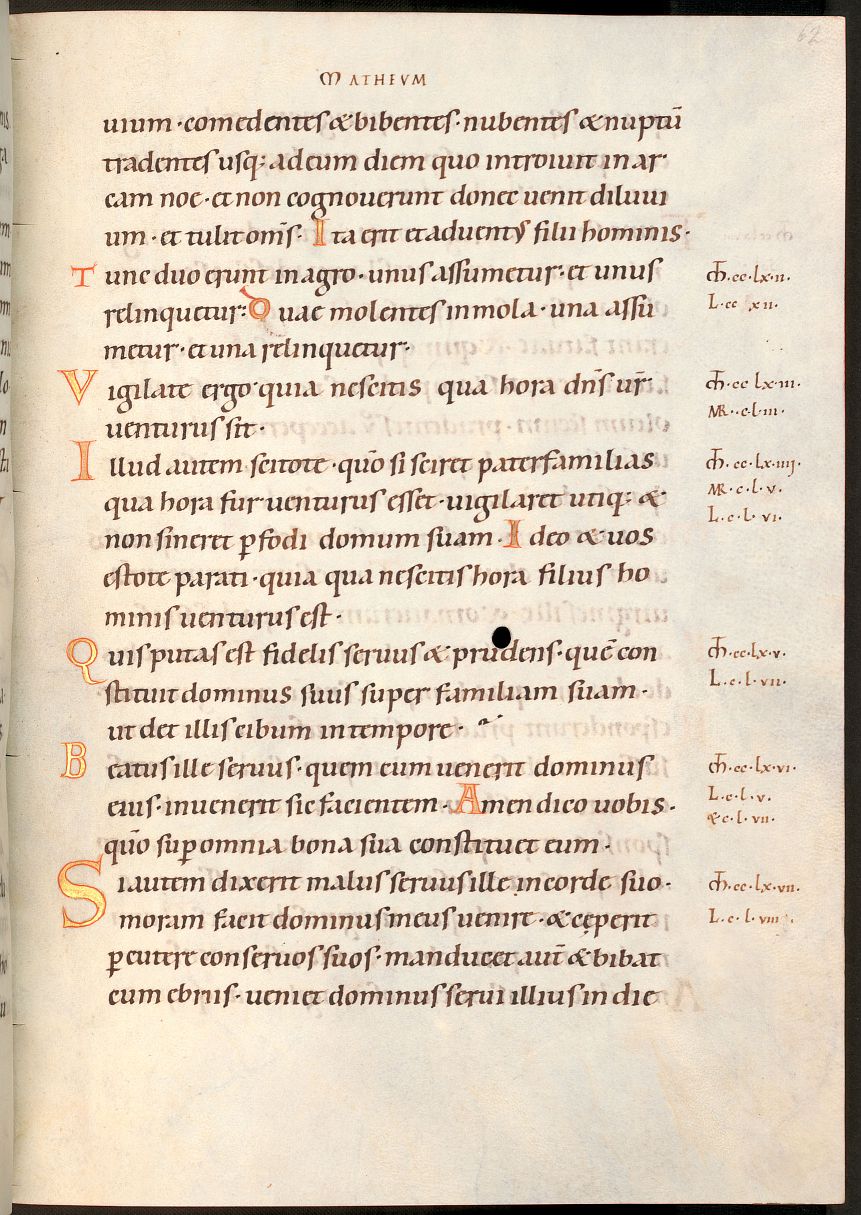 62
MATHEVM
uium · comedentes & bibentes · nubentes & nuptū
tradentes usq; ad eum diem quo introiuit in ar
cam noe · et non cognouerunt donec uenit diluui
um · et tulit om̄s · Ita erit et aduentꝰ filii hominis ·
Tunc duo erunt in agro · unus assumetur · et unus
relinquetur : Quae molentes in mola · una assu
metur · et una relinquetur ·
Vigilate ergo · quia nescitis qua hora dn̄s ur̄
uenturus sit ·
Illud autem scitote · quō si sciret paterfamilias
qua hora fur uenturus esset · uigilaret utiq; &
non sineret ꝑfodi domum suam · Ideo & uos
estote parati · quia qua nescitis hora filius ho
minis uenturus est ·
Quis putas est fidelis seruus & prudens · quē con
stituit dominus suus super familiam suam ·
ut det illis cibum in tempore ·
Beatus ille seruus · quem cum uenerit dominus
eius · inuenerit sic facientem · Amen dico uobis ·
quō suꝑ omnia bona sua constituet eum ·
Si autem dixerit malus seruus ille in corde suo ·
moram facit dominus meus uenire · & cęperit
ꝑcutere conseruos suos · manducet aut̄ & bibat
cum ebriis · ueniet dominus serui illius in die
cc · lx · ii ·
L · cc xii ·
cc lx · iii ·
MR · c · l · iii ·
cc · lx · iiij ·
MR · c · l · v ·
L · c · l · vi ·
cc · lx · v ·
L · c · l · vii ·
cc · lx · vi ·
L · c · l · v ·
& c · l · vii ·
cc · lx · vii ·
L · c · l · viii ·